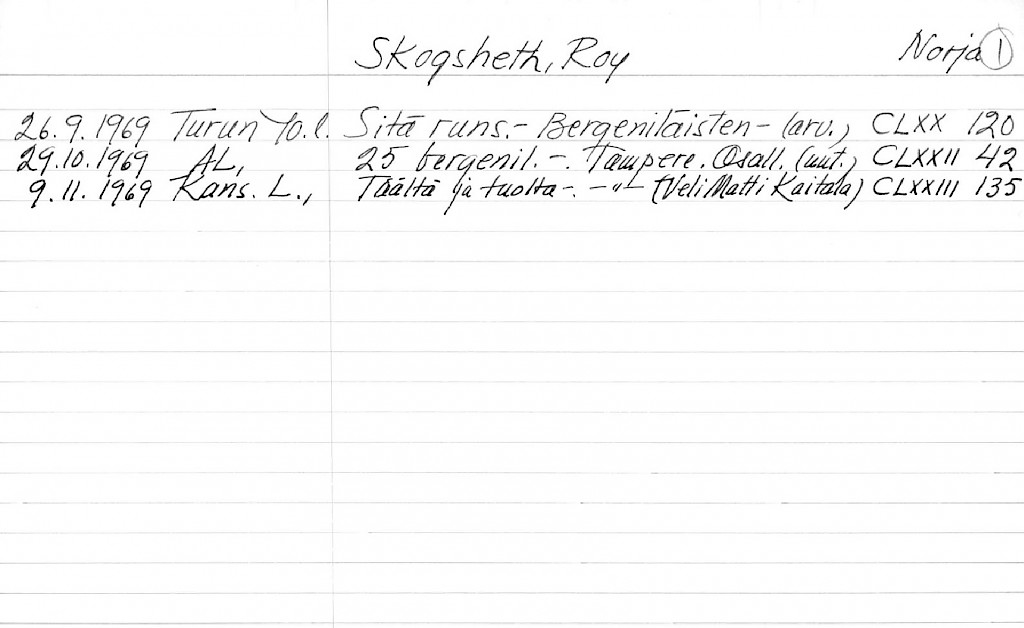 Skogsheth, Roy Norja 1
26.9.1969 Turun Yo.l. Sitä runs.- Bergeniläisten - (arv.) CLXX 120
29.10.1969 AL, 25 bergenil. -. Tampere. Osall. (uut.) CLXXII 42
9.11.1969 Kans. L., Täältä ja tuolta -. -"- (Veli Matti Kaitala) CLXXIII 135